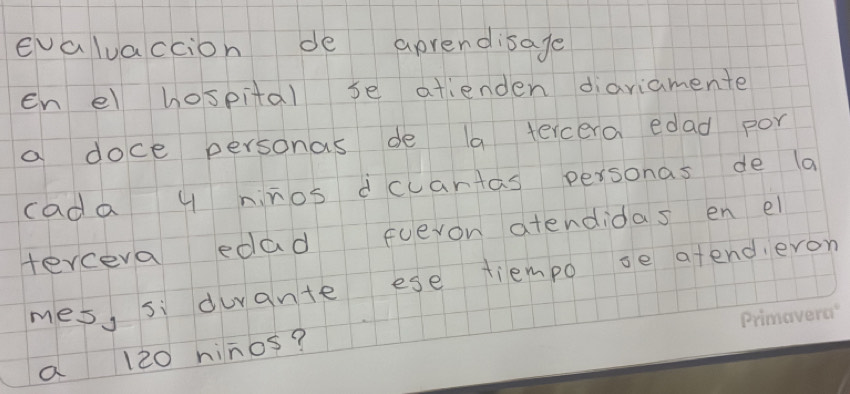 Evaluaccion de aprendisaje
En el hospital se atienden diariamente
a doce personas de la tercera edad por
cada 4 niños ¿cuantas personas de la
tercera edad fueron atendidas en el
mes, si durante ese tiempo se atendieron
a 120 niños?
Primavera